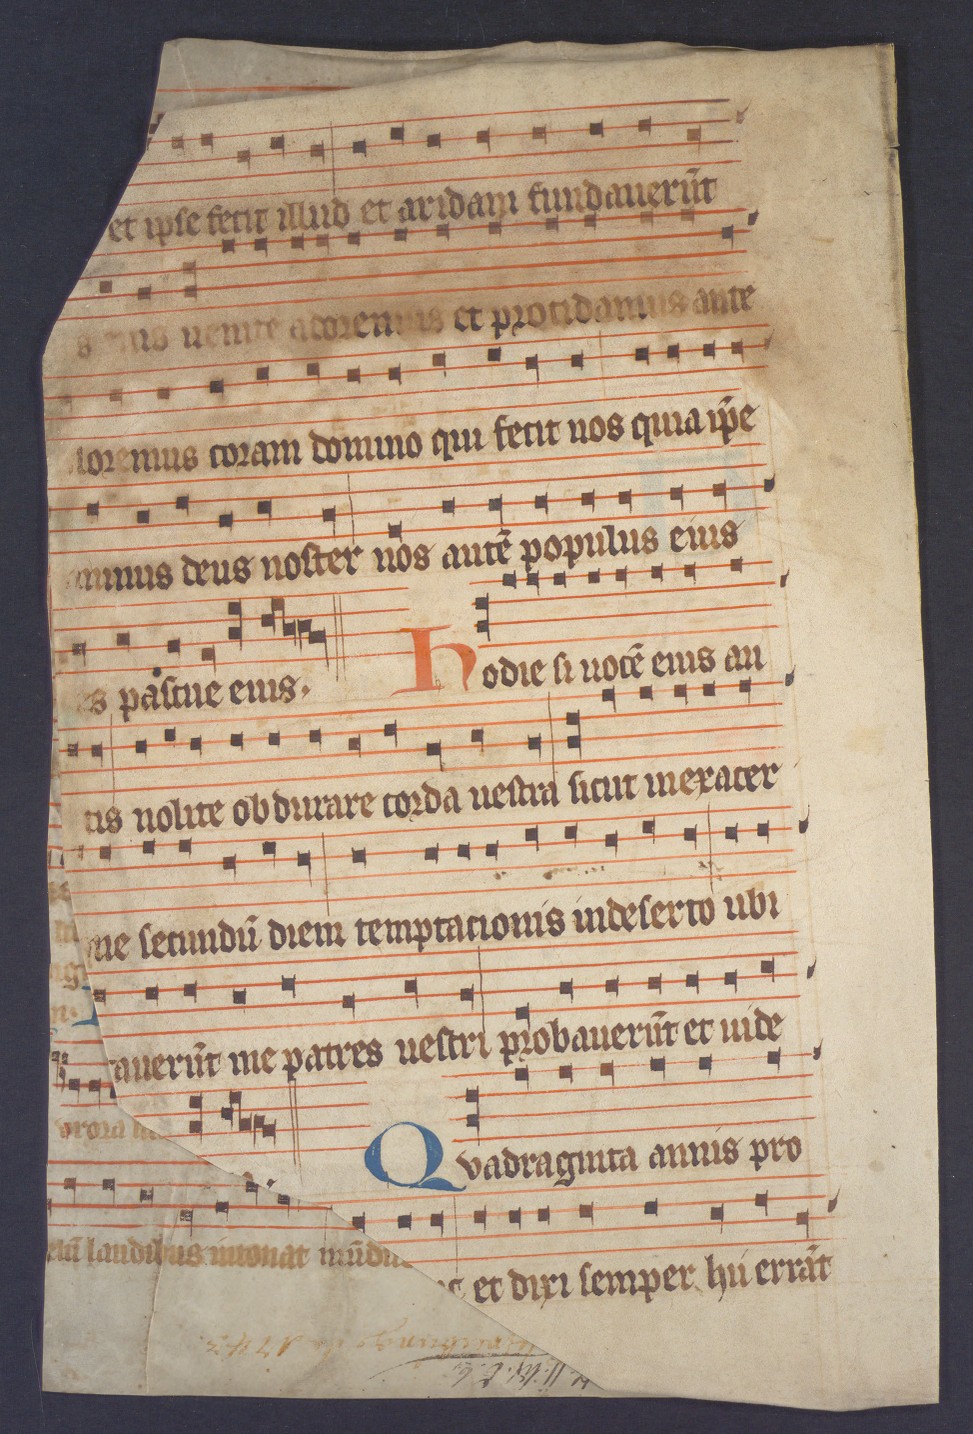 et ipse fecit illud et aridam fundauerūt
uenite adoremus et procidamus ante
loremus coram domino qui fecit nos quia ip̄e
minus deus noster nos autē populus eius
s pascue eius.
Hodie si uocē eius au
tis nolite obdurare corda uestra sicut inexacer
ne secundū diem temptacionis indeserto ubi
tauerūt me patres uestri probauerūt et uide
Quadraginta annis pro
et dixi semper hii errāt
laudibus intonat